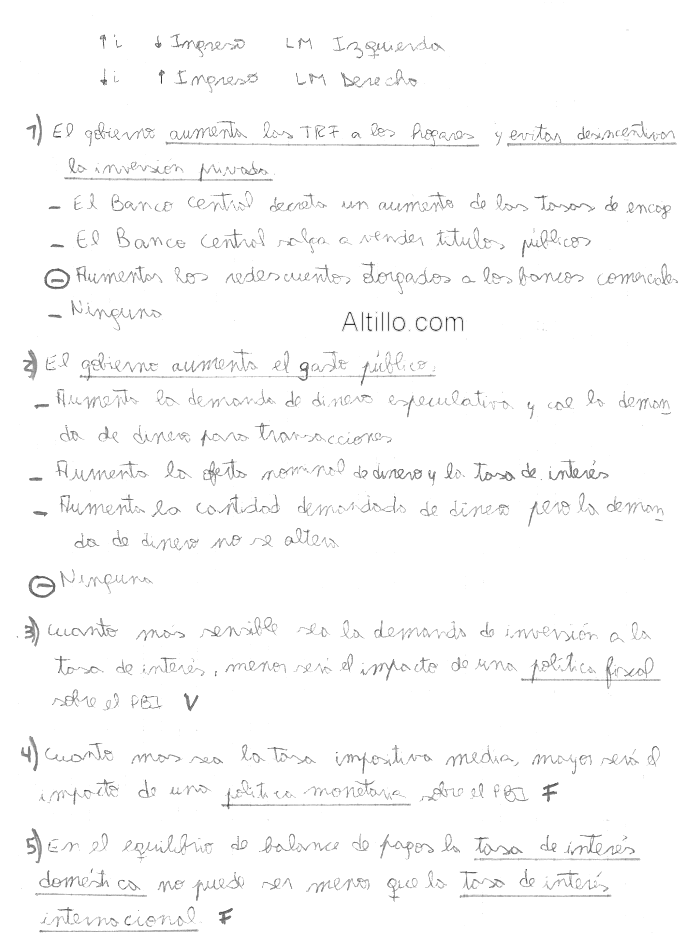 ↑i ↓ Ingreso LM Izquierda
↓i ↑ Ingreso LM Derecho
1) El gobierno aumenta las TRF a los hogares y evitar desincentivar
la inversión privada
- El Banco Central decreta un aumento de las tasas de encaje
- El Banco Central salga a vender títulos públicos
⊖ Aumentar los redescuentos otorgados a los bancos comerciales
- Ninguno
Altillo.com
2) El gobierno aumenta el gasto público.
- Aumenta la demanda de dinero especulativa y cae la deman
da de dinero para transacciones
- Aumenta la oferta nominal de dinero y la tasa de interés
- Aumenta la cantidad demandada de dinero pero la deman
da de dinero no se altera
⊖ Ninguna
3) Cuanto mas sensible sea la demanda de inversión a la
tasa de interés, menor será el impacto de una política fiscal
sobre el PBI V
4) Cuanto mas sea la tasa impositiva media, mayor será el
impacto de una política monetaria sobre el PBI F
5) En el equilibrio de balance de pagos la tasa de interés
doméstica no puede ser menor que la tasa de interés
internacional F